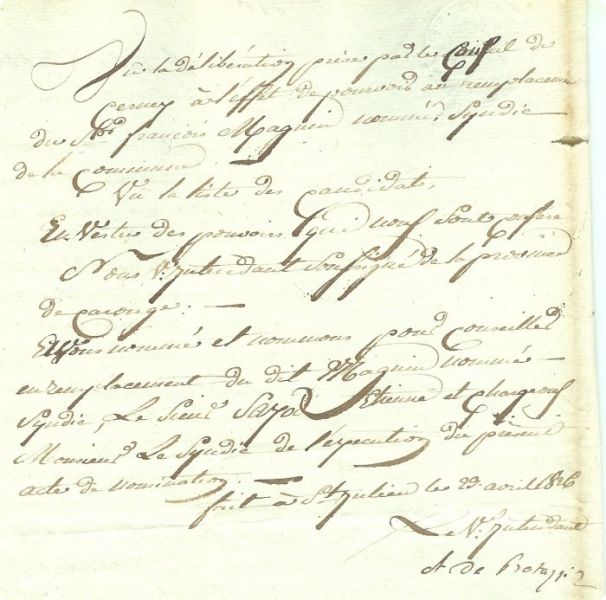 Vu la déliberation prise par le Conseil de
Cernex à l'effet de pourvoir au remplacement
du Sr. françois Magnin nommé Syndic
de la Commune. —
Vu la liste des Candidats,
En Vertu des pouvoirs qui nous sont conféré
Nous V. Intendant soussigné de la province
de Carouge. —
Avons nommé et nommons pour Conseiller
en remplacement du dit Magnin nommé
Syndic, Le Sieur Etienne et chargeons
Monsieur Le Syndic de l'execution du présent
acte de nomination. —
fait à St. Julien le 22 avril 1826
Le V. Intendant
de